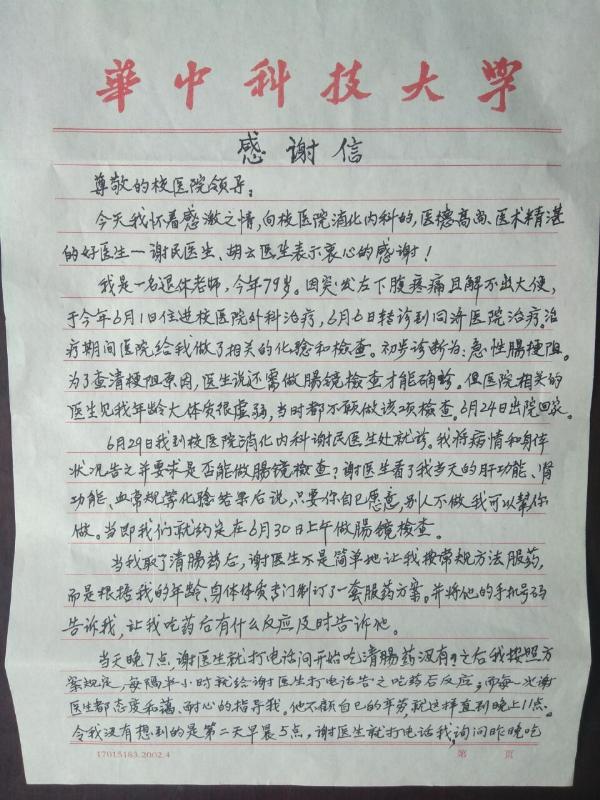 華中科技大学
感谢信
尊敬的校医院领导:
今天我怀着感激之情,向校医院消化内科的,医德高尚、医术精湛
的好医生一谢民医生、胡云医生表示衷心的感谢!
我是一名退休老师,今年79岁。因突发左下腹疼痛且解不出大便,
于今年6月1日住进校医院外科治疗,6月6日转诊到同济医院治疗。治
疗期间医院给我做了相关的化验和检查。初步诊断为:急性腸梗阻。
为了查清梗阻原因,医生说还需做腸镜检查才能确诊。但医院相关的
医生见我年龄大体质很虚弱,当时都不敢做该项检查。6月24日出院回家。
6月29日我到校医院消化内科谢民医生处就诊。我将病情和身体
状况告之并要求是否能做腸镜检查?谢医生看了我当天的肝功能、肾
功能、血常规等化验结果后说,只要你自己愿意,别人不做我可以幫你
做。当即我们就约定在6月30日上午做腸镜检查。
当我取了清腸药后,谢医生不是简单地让我按常规方法服药,
而是根据我的年龄、身体体质专门制订了一套服药方案。并将他的手机号码
告诉我,让我吃药后有什么反应及时告诉他。
当天晚7点,谢医生就打电话问开始吃清腸药没有?之后我按照方
案规定,每隔半小时就给谢医生打电话告之吃药后反应,而每一次谢
医生都态度和蔼、耐心的指导我。他不顾自已的年劳,就这样直到晚上11点。
令我没有想到的是第二天早晨5点,谢医生就打电话我,询问昨晚吃
17015183.2002.4
第 页